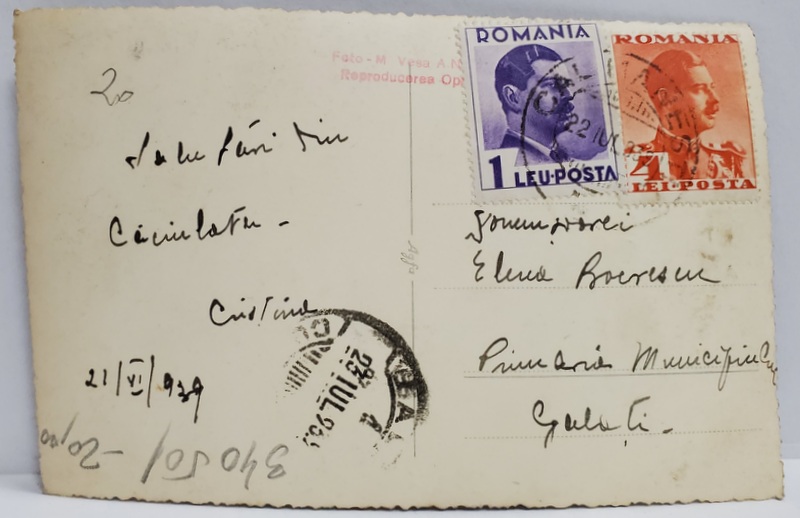 20
Salutări din
Căciulata -
Cristina
21/VI/939
Foto - M Vesa A
Reproducerea Op
ROMANIA
1 LEU·POSTA
ROMANIA
4
LEI·POSTA
22 IUL
Agfa
Elena Boerescu
Primăria Municipiului
Galați.
23 IUL 93
34050/
-20,00